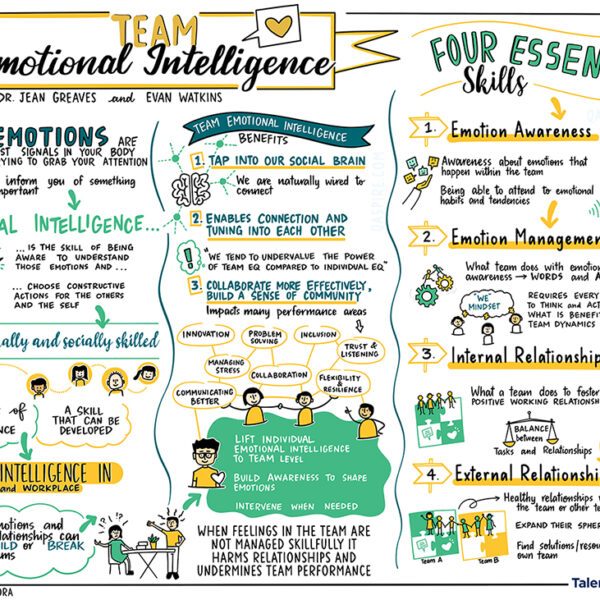 TEAM
Emotional Intelligence
DR. JEAN GREAVES and EVAN WATKINS
EMOTIONS ARE
ST SIGNALS IN YOUR BODY
RYING TO GRAB YOUR ATTENTION
inform you of something
important
AL INTELLIGENCE...
... IS THE SKILL OF BEING
AWARE TO UNDERSTAND
THOSE EMOTIONS AND ...
... CHOOSE CONSTRUCTIVE
ACTIONS FOR THE OTHERS
AND THE SELF
ally and socially skilled
of
NCE
A SKILL
THAT CAN BE
DEVELOPED
INTELLIGENCE IN
and WORKPLACE
motions and
elationships can
ILD or BREAK
ams
TEAM EMOTIONAL INTELLIGENCE
BENEFITS
1. TAP INTO OUR SOCIAL BRAIN
We are naturally wired to
connect
2. ENABLES CONNECTION AND
TUNING INTO EACH OTHER
"WE TEND TO UNDERVALUE THE POWER
OF TEAM EQ COMPARED TO INDIVIDUAL EQ"
3. COLLABORATE MORE EFFECTIVELY,
BUILD A SENSE OF COMMUNITY
Impacts many performance areas
INNOVATION
PROBLEM
SOLVING
INCLUSION
TRUST &
LISTENING
MANAGING
STRESS
COLLABORATION
FLEXIBILITY
& RESILIENCE
COMMUNICATING
BETTER
LIFT INDIVIDUAL
EMOTIONAL INTELLIGENCE
TO TEAM LEVEL
BUILD AWARENESS TO SHAPE
EMOTIONS
INTERVENE WHEN NEEDED
WHEN FEELINGS IN THE TEAM ARE
NOT MANAGED SKILLFULLY IT
HARMS RELATIONSHIPS AND
UNDERMINES TEAM PERFORMANCE
FOUR ESSEN
Skills
1. Emotion Awareness
Awareness about emotions that
happen within the team
Being able to attend to emotional
habits and tendencies
2. Emotion Management
What team does with emotion
awareness → WORDS and A
"WE"
MINDSET
REQUIRES EVERY
TO THINK and ACT
WHAT IS BENEFI
TEAM DYNAMICS
3. Internal Relationship
What a team does to foster
POSITIVE WORKING RELATIONSH
BALANCE
between
Tasks and Relationships
4. External Relationshi
Healthy relationships w
the team or other te
EXPAND THEIR SPHER
Find solutions/resou
own team
Team A
Team B
Talen
ORA